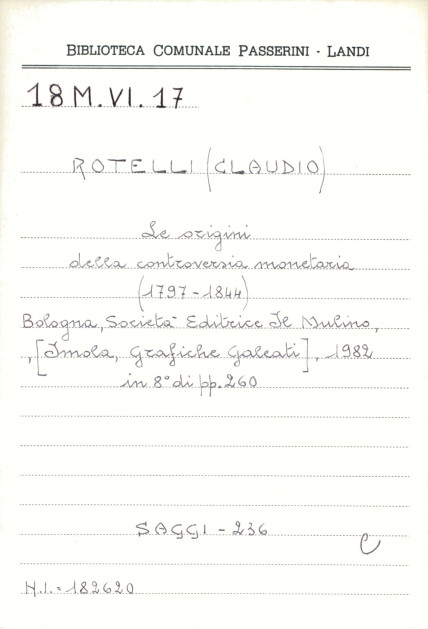 BIBLIOTECA COMUNALE PASSERINI - LANDI
18 M. VI. 17
ROTELLI (CLAUDIO)
Le origini
della controversia monetaria
(1797-1844)
Bologna, Società Editrice Il Mulino,
, [Imola, Grafiche Galeati], 1982
in 8° di pp. 260
SAGGI - 236
C
N.I. = 182620